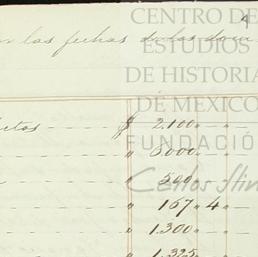 4
CENTRO DE
ESTUDIOS
DE HISTORIA
DE MÉXICO
FUNDACIÓ
Carlos Slim
las fechas de las docu
etos $ 2.100 " "
" 6000 " "
" 500 " "
" 167 " 4 "
" 1.300 " "
" 1.325